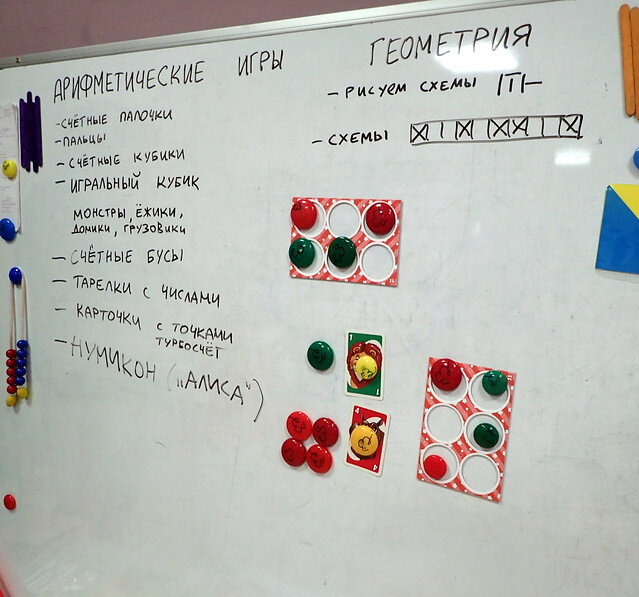 АРИФМЕТИЧЕСКИЕ ИГРЫ
-СЧЁТНЫЕ ПАЛОЧКИ
-ПАЛЬЦЫ
- СЧЁТНЫЕ КУБИКИ
- ИГРАЛЬНЫЙ КУБИК
МОНСТРЫ, ЁЖИКИ,
ДОМИКИ, ГРУЗОВИКИ
- СЧЁТНЫЕ БУСЫ
- ТАРЕЛКИ С ЧИСЛАМИ
- КАРТОЧКИ С ТОЧКАМИ
ТУРБОСЧЁТ
- НУМИКОН („АЛИСА“)
ГЕОМЕТРИЯ
- РИСУЕМ СХЕМЫ
- СХЕМЫ
1
4
4